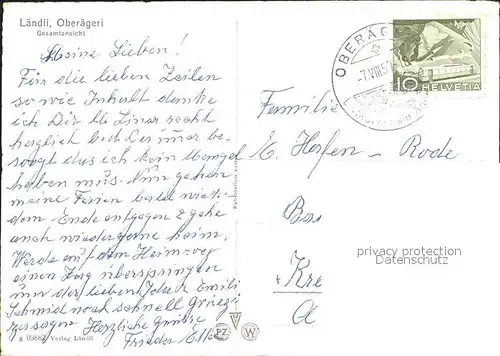 Ländli, Oberägeri
Gesamtansicht
Meine Lieben!
Für die lieben Zeilen
sowie Inhalt danke
ich Dir lb. Lina recht
herzlich bist Du immer be-
sorgt das ich kein Mangel
haben mus. Nun gehen
meine Ferien bald wieder
dem Ende entgegen & gehe
auch wieder gerne heim.
Werde auf dem Heimweg
einen Zug überspringen
um der lieben Ida & Emili
Schmid noch schnell Grüezi
zu sagen Herzliche Grüsse
Frieda
Verlag Ländli
OBERÄGERI
-7.VIII.57
10 HELVETIA
Familie
E. Hofen - Rode
Bas
Kre
privacy protection
Datenschutz
PZ
W